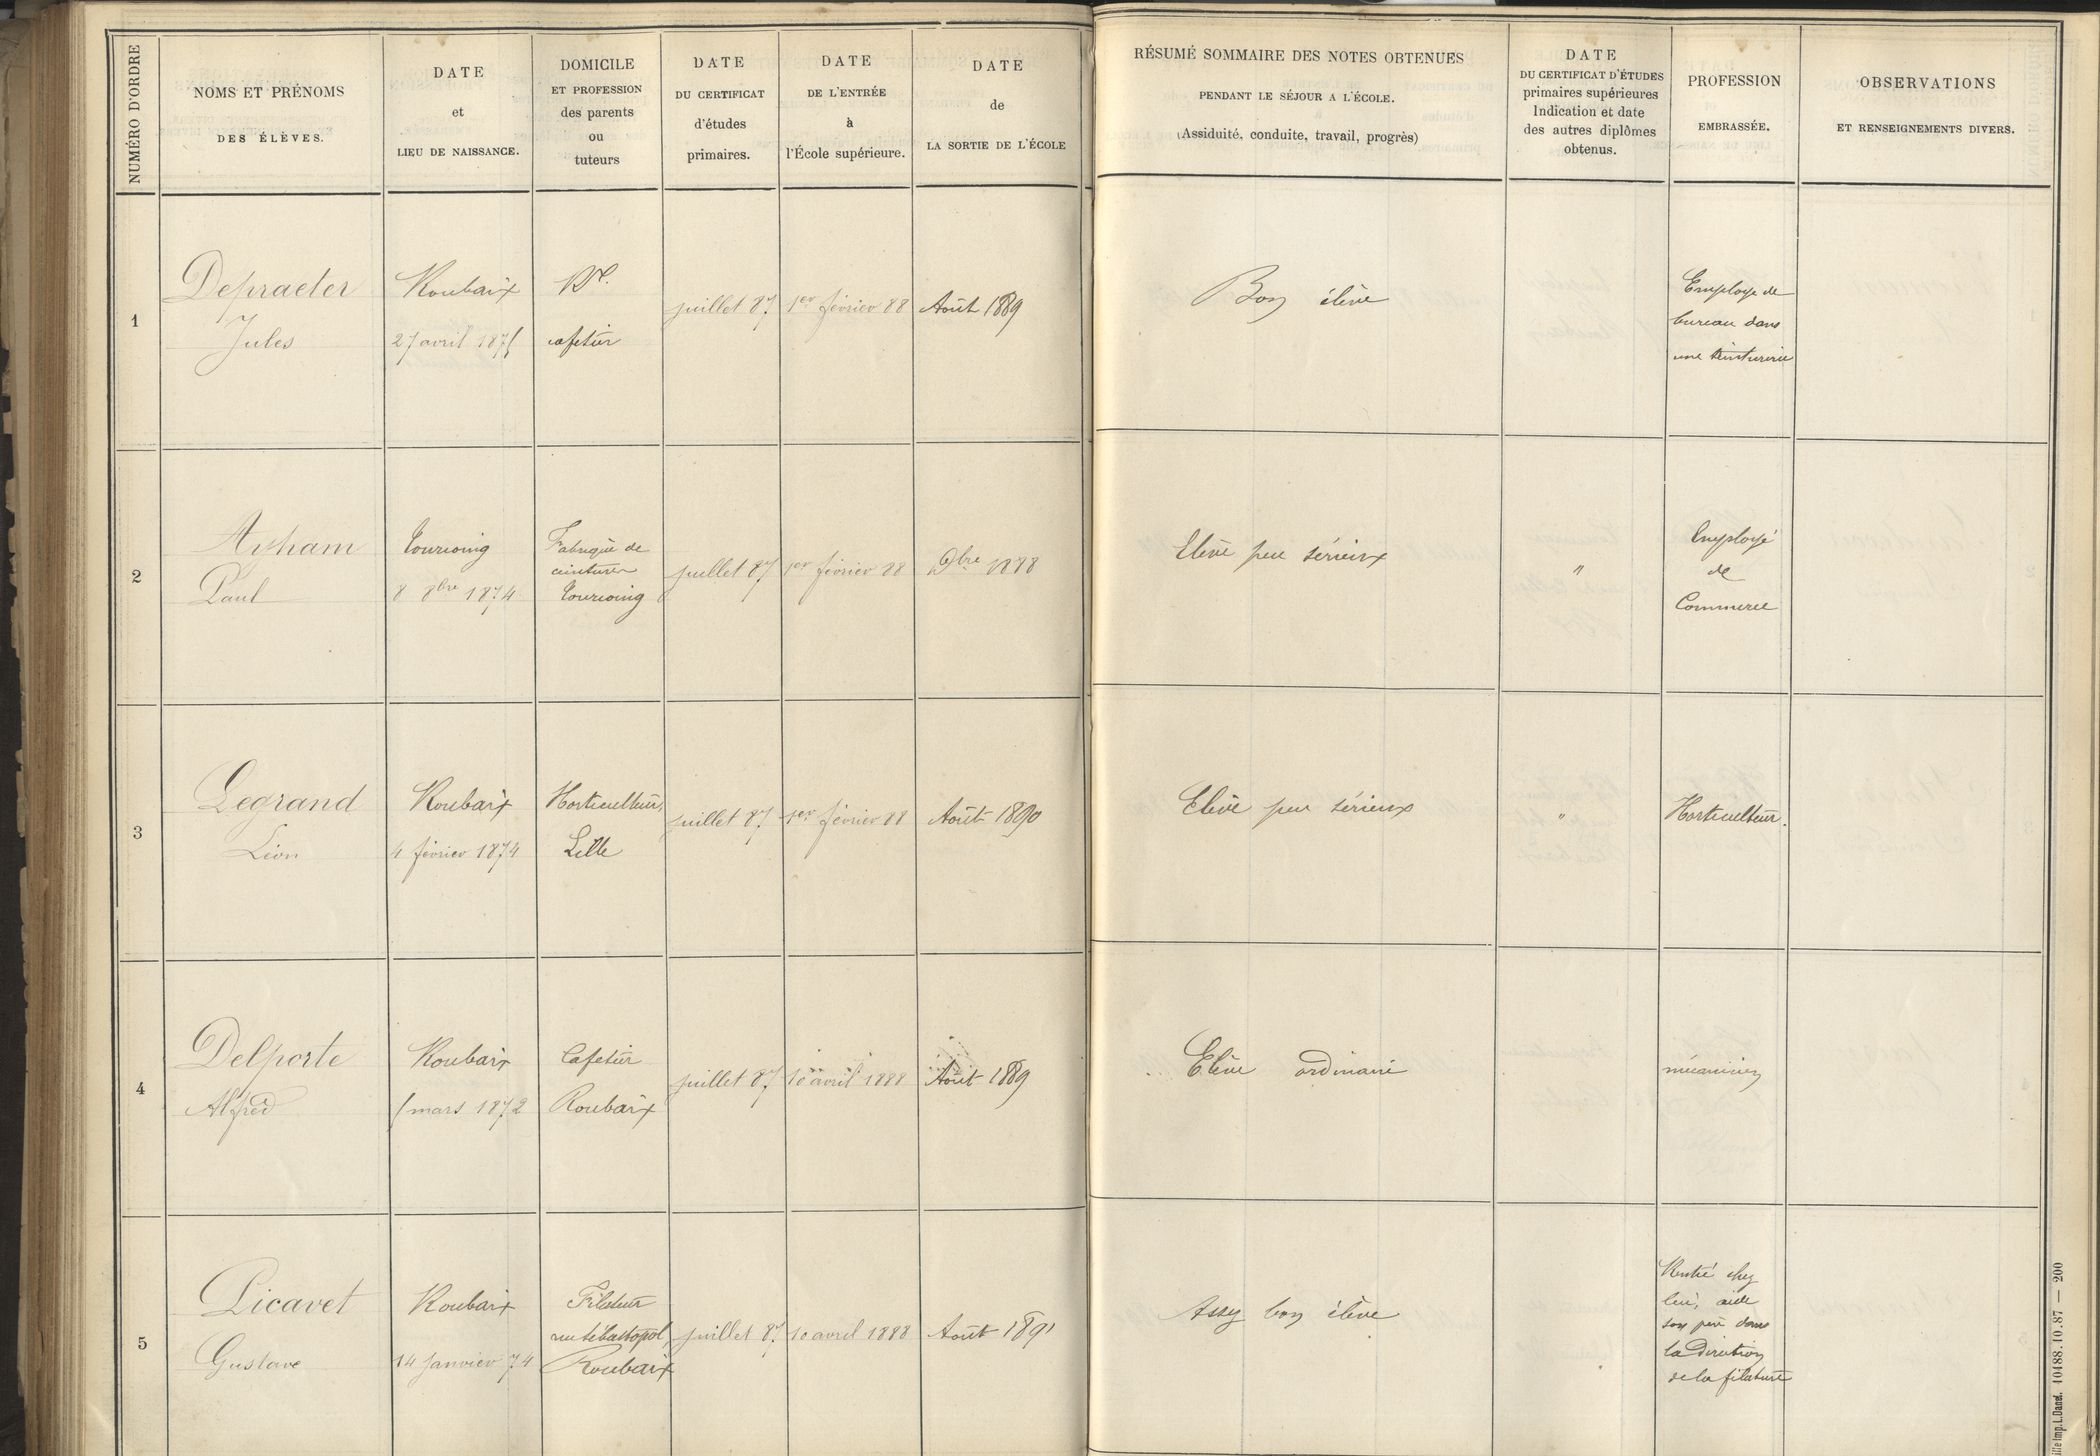 NUMÉRO D'ORDRE
NOMS ET PRÉNOMS
DES ÉLÈVES.
DATE
et
LIEU DE NAISSANCE.
DOMICILE
ET PROFESSION
des parents
ou
tuteurs
DATE
DU CERTIFICAT
d'études
primaires.
DATE
DE L'ENTRÉE
à
l'École supérieure.
DATE
de
LA SORTIE DE L'ÉCOLE
RÉSUMÉ SOMMAIRE DES NOTES OBTENUES
PENDANT LE SÉJOUR A L'ÉCOLE.
(Assiduité, conduite, travail, progrès)
DATE
DU CERTIFICAT D'ÉTUDES
primaires supérieures
Indication et date
des autres diplômes
obtenus.
PROFESSION
EMBRASSÉE.
OBSERVATIONS
ET RENSEIGNEMENTS DIVERS.
1
Depraeter
Jules
Roubaix
27 avril 1875
cafetier
juillet 87
1er février 88
Août 1889
Bon élève
Employé de
bureau dans
une teinturerie
2
Paul
Tourcoing
8 8bre 1874
Fabrique de
ceintures
Tourcoing
juillet 87
1er février 88
1888
Elève peu sérieux
"
Employé
de
Commerce
3
Legrand
Léon
Roubaix
4 février 1874
Horticulteur,
Lille
juillet 87
1er février 88
Août 1890
Elève peu sérieux
"
Horticulteur.
4
Delporte
Alfred
Roubaix
5 mars 1872
Cafetier
Roubaix
juillet 87
10 avril 1888
Août 1889
Elève ordinaire
mécanicien
5
Picavet
Gustave
Roubaix
14 janvier 74
Filateur
rue Sébastopol,
Roubaix
juillet 87
10 avril 1888
Août 1891
Assez bon élève
Rentré chez
lui, aide
son père dans
la Direction
de la filature
Lille Imp. L. Danel. 10488.10.87 — 200